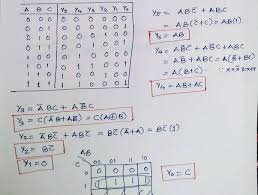 A B C Y5 Y4 Y3 Y2 Y1 Y0
0 0 0 0 0 0 0 0 0
0 0 1 0 0 0 0 0 1
0 1 0 0 0 0 1 0 0
0 1 1 0 0 1 0 0 1
1 0 0 0 1 0 0 0 0
1 0 1 0 1 1 0 0 1
1 1 0 1 0 0 1 0 0
1 1 1 1 1 0 0 0 1
Y5 = ABC̄ + ABC
= AB(C̄+C) = AB(1)
Y5 = AB
Y4 = AB̄C̄ + AB̄C + ABC
= AB̄ + ABC = A(B̄+BC)
= A(B̄+C)
Y4 = AB̄+AC
Y3 = ĀBC + AB̄C
Y3 = C(ĀB+AB̄) = C(A⊕B)
Y2 = ĀBC̄ + ABC̄ = BC̄(Ā+A) = BC̄(1)
Y2 = BC̄
Y1 = 0
AB
C 00 01 11 10
Y0 = C